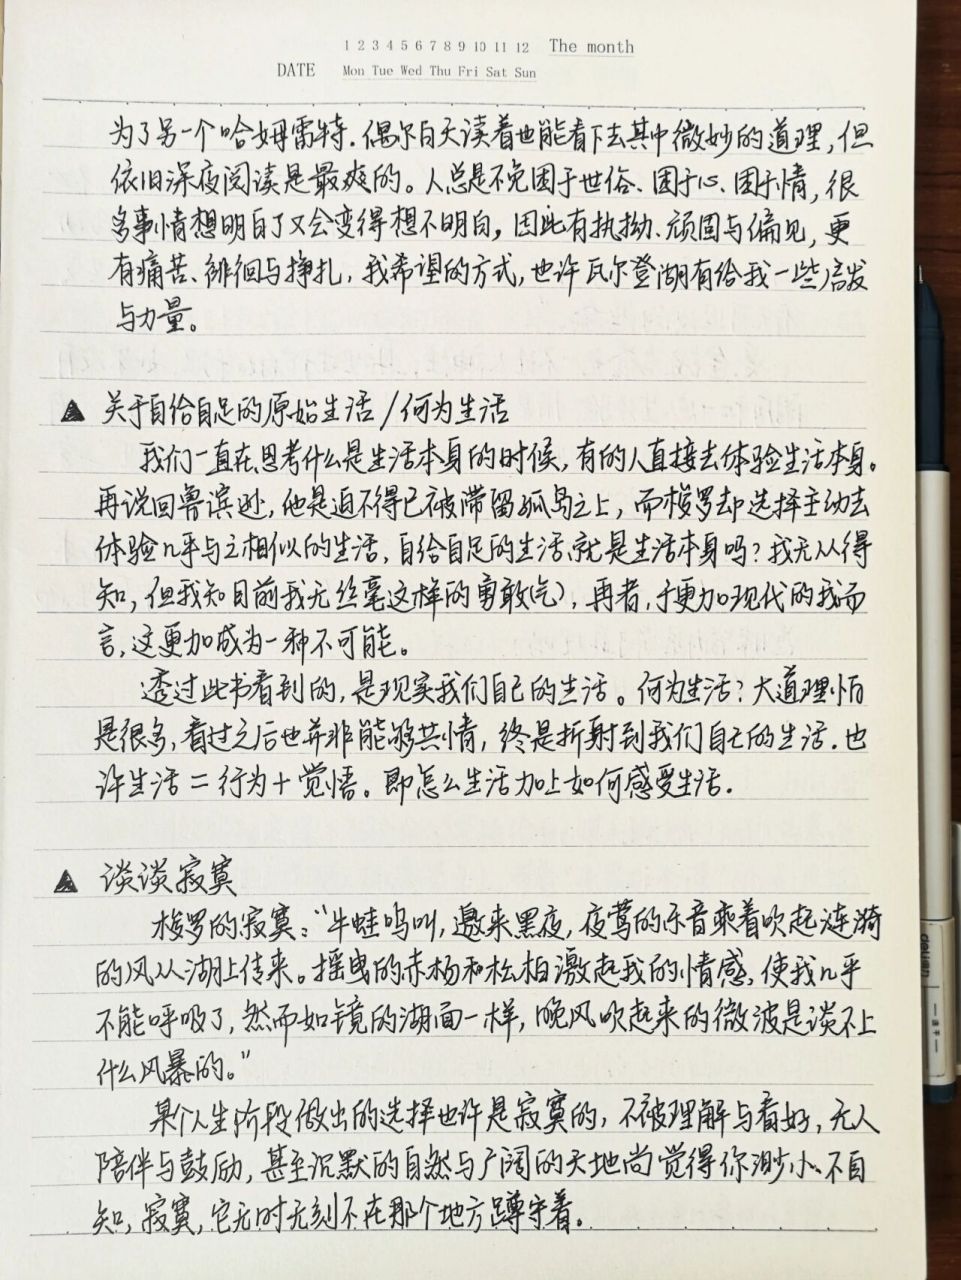 1 2 3 4 5 6 7 8 9 10 11 12 The month
DATE Mon Tue Wed Thu Fri Sat Sun
为了另一个哈姆雷特.偶尔白天读着也能看下去其中微妙的道理,但
依旧深夜阅读是最爽的。人总是不免困于世俗、困于心、困于情,很
多事情想明白了又会变得想不明白,因此有执拗、顽固与偏见,更
有痛苦、徘徊与挣扎,我希望的方式,也许瓦尔登湖有给我一些启发
与力量。
▲ 关于自给自足的原始生活/何为生活
我们一直在思考什么是生活本身的时候,有的人直接去体验生活本身。
再说回鲁滨逊,他是迫不得已被滞留孤岛之上,而梭罗却选择主动去
体验几乎与之相似的生活,自给自足的生活就是生活本身吗?我无从得
知,但我知目前我无丝毫这样的勇敢气),再者,于更加现代的我而
言,这更加成为一种不可能。
透过此书看到的,是现实我们自己的生活。何为生活?大道理怕
是很多,看过之后也并非能够共情,终是折射到我们自己的生活.也
许生活=行为+觉悟。即怎么生活加上如何感受生活.
▲ 谈谈寂寞
梭罗的寂寞:“牛蛙鸣叫,邀来黑夜,夜莺的乐音乘着吹起涟漪
的风从湖上传来。摇曳的赤杨和松柏激起我的情感,使我几乎
不能呼吸了,然而如镜的湖面一样,晚风吹起来的微波是谈不上
什么风暴的。”
某个人生阶段做出的选择也许是寂寞的,不被理解与看好,无人
陪伴与鼓励,甚至沉默的自然与广阔的天地尚觉得你渺小、不自
知,寂寞,它无时无刻不在那个地方蹲守着。
deli